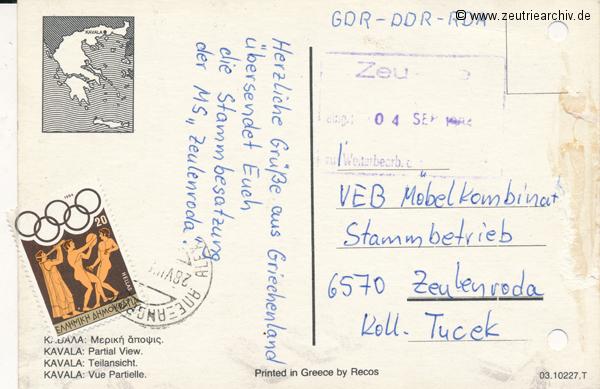 © www.zeutriearchiv.de
KAVALA
GDR-DDR-RDA
Zeu
04 SEP
Herzliche Grüße aus Griechenland
übersendet Euch
die Stammbesatzung
der MS „Zeulenroda“
VEB Möbelkombinat
Stammbetrieb
6570 Zeulenroda
Koll. Tucek
1984
20
HELLAS
ΕΛΛΗΝΙΚΗ ΔΗΜΟΚΡΑΤΙΑ
ΚΑΒΑΛΑ: Μερική άποψις.
KAVALA: Partial View.
KAVALA: Teilansicht.
KAVALA: Vue Partielle.
Printed in Greece by Recos
03.10227.T